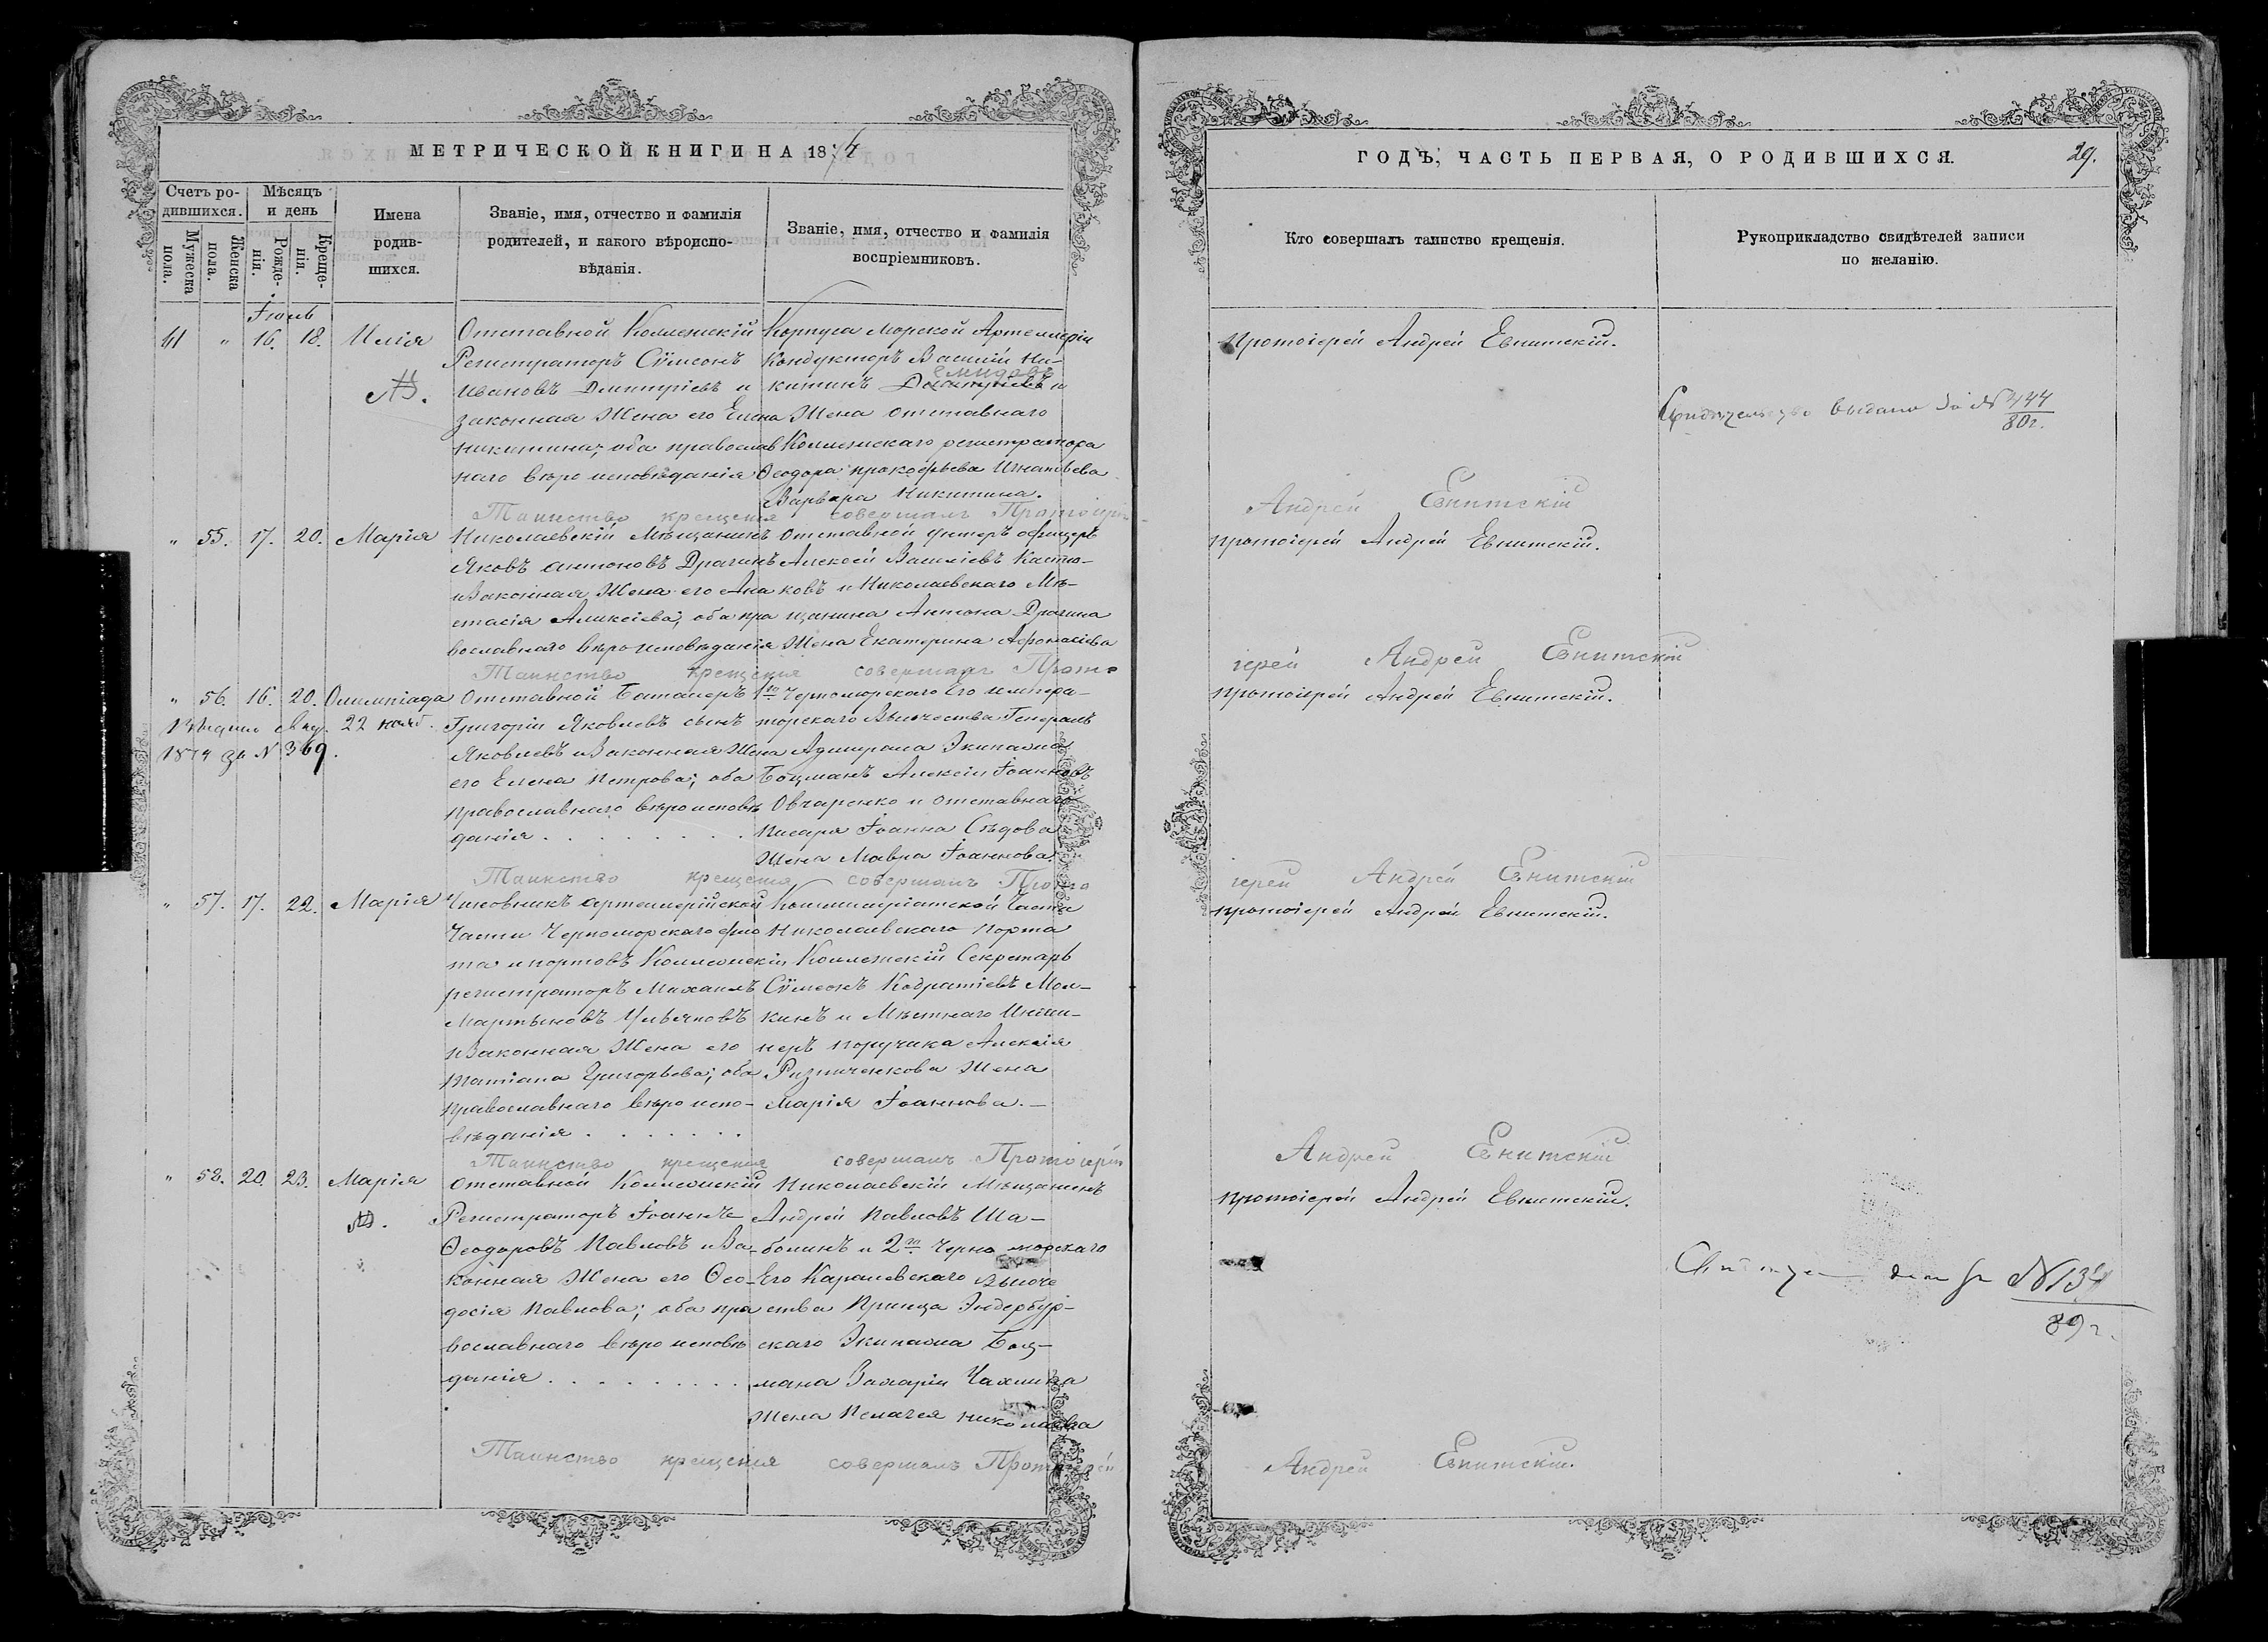 МЕТРИЧЕСКОЙ КНИГИ НА 1874
Счетъ ро-
дившихся.
Мужеска
пола.
Женска
пола.
Мѣсяцъ
и день
Рожде-
нія.
Креще-
нія.
Имена
родив-
шихся.
Званіе, имя, отчество и фамилія
родителей, и какого вѣроиспо-
вѣданія.
Званіе, имя, отчество и фамилія
воспріемниковъ.
Іюль
41 " 16. 18. Илія
Отставной Коллежскій
Регистраторъ Сѵмеонъ
Ивановъ Дмитріевъ и
законная Жена его Елена
Никитина; оба православ
наго вѣроисповѣданія
Корпуса Морской Артиллеріи
Кондукторъ Василій Ни-
китинъ Дмитріевъ и
Жена отставнаго
Коллежскаго регистратора
Ѳеодора Прокофьева Игнатьева
Варвара Никитина.
Таинство крещенія совершалъ Протоіерей
" 55. 17. 20. Марія
Николаевскій Мѣщанинъ
Яковъ Антоновъ Драгинъ
и Законная Жена его Ана
стасія Алексіева; оба пра
вославнаго вѣроисповѣданія
Отставной унтеръ офицеръ
Алексій Василіевъ Костю-
ковъ и Николаевскаго Мѣ-
щанина Антона Драгина
Жена Екатерина Афонасіева
Таинство крещенія совершалъ Прото
" 56. 16. 20. Олимпіада
22 нояб.
1874 за N 369.
Отставной Баталеръ
Григорій Яковлевъ сынъ
Яковлевъ и Законная Жена
его Елена Петрова; оба
православнаго вѣроисповѣ
данія . . . . . . . . .
1го Черноморскаго Его Импера-
торскаго Высочества Генералъ
Адмирала Экипажа
Боцманъ Алексій Іоанновъ
Овчаренко и отставнаго
писаря Іоанна Сѣдова
Жена Мавра Іоаннова.
Таинство крещенія совершалъ Прото
" 57. 17. 22. Марія
Чиновникъ Артиллерійской
Части Черноморскаго фло
та и портовъ Коллежскій
регистраторъ Михаилъ
Мартыновъ Ульяновъ
и Законная Жена его
Татіана Григорьева; оба
православнаго вѣроиспо-
вѣданія . . . . . . .
Коммисаріатской Части
Николаевскаго порта
Коллежскій Секретарь
Сѵмеонъ Кодратіевъ Мол-
кинъ и Мѣстнаго Инжи-
неръ поручика Алексія
Ризниченкова Жена
Марія Іоаннова. —
Таинство крещенія совершалъ Протоіерей
" 58. 20. 23. Марія
Отставной Коллежскій
Регистраторъ Іоаннъ
Ѳеодоровъ Павловъ и За-
конная Жена его Ѳео-
досія Павлова; оба пра
вославнаго вѣроисповѣ
данія . . . . . . . . .
Николаевскій Мѣщанинъ
Андрей Павловъ Ша-
болинъ и 2го Черноморскаго
Его Королевскаго Высоче
ства Принца Эндербур-
скаго Экипажа Боц-
мана Захарія Чахлина
Жена Пелагея Николаева
Таинство крещенія совершалъ Протоіерей
ГОДЪ, ЧАСТЬ ПЕРВАЯ, О РОДИВШИХСЯ.
29.
Кто совершалъ таинство крещенія.
Рукоприкладство свидѣтелей записи
по желанію.
Протоіерей Андрей Евнитскій.
Свидѣтельство выдано за №
80 г.
Андрей Евнитскій
Протоіерей Андрей Евнитскій.
іерей Андрей Евнитскій
Протоіерей Андрей Евнитскій.
іерей Андрей Евнитскій
Протоіерей Андрей Евнитскій.
Андрей Евнитскій
Протоіерей Андрей Евнитскій.
89 г.
Андрей Евнитскій.